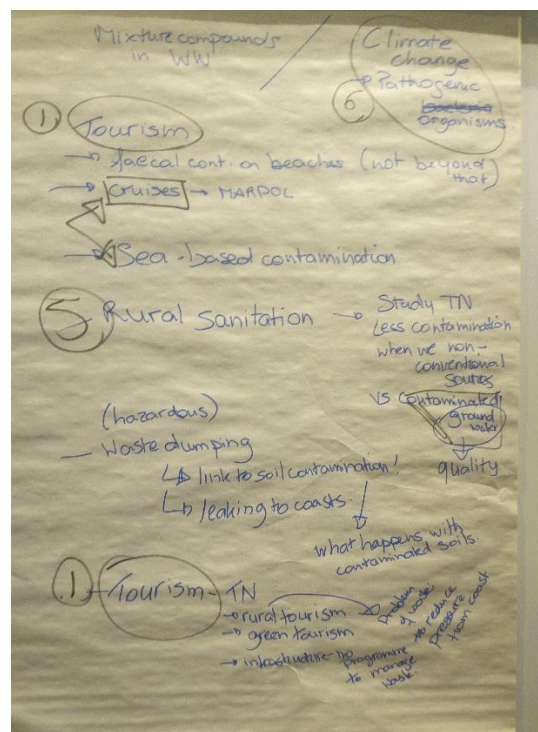 Mixture compounds
in WW
Climate
change
→ Pathogenic
bacteria
organisms.
6
1 Tourism
→ faecal cont. on beaches (not beyond
that)
→ Cruises → MARPOL
→ Sea-based contamination
5 Rural sanitation →
Study TN
Less contamination
when
non-
conventional
sources
vs contaminated
ground
water
quality
(hazardous)
— Waste dumping
↳ link to soil contamination!
↳ leaking to coasts.
what happens with
contaminated soils.
1 - Tourism - TN
→ rural tourism
→ green tourism
→ infrastructure - no
programme
to manage
waste.
Problem
of waste.
→ to reduce
pressure
from coast